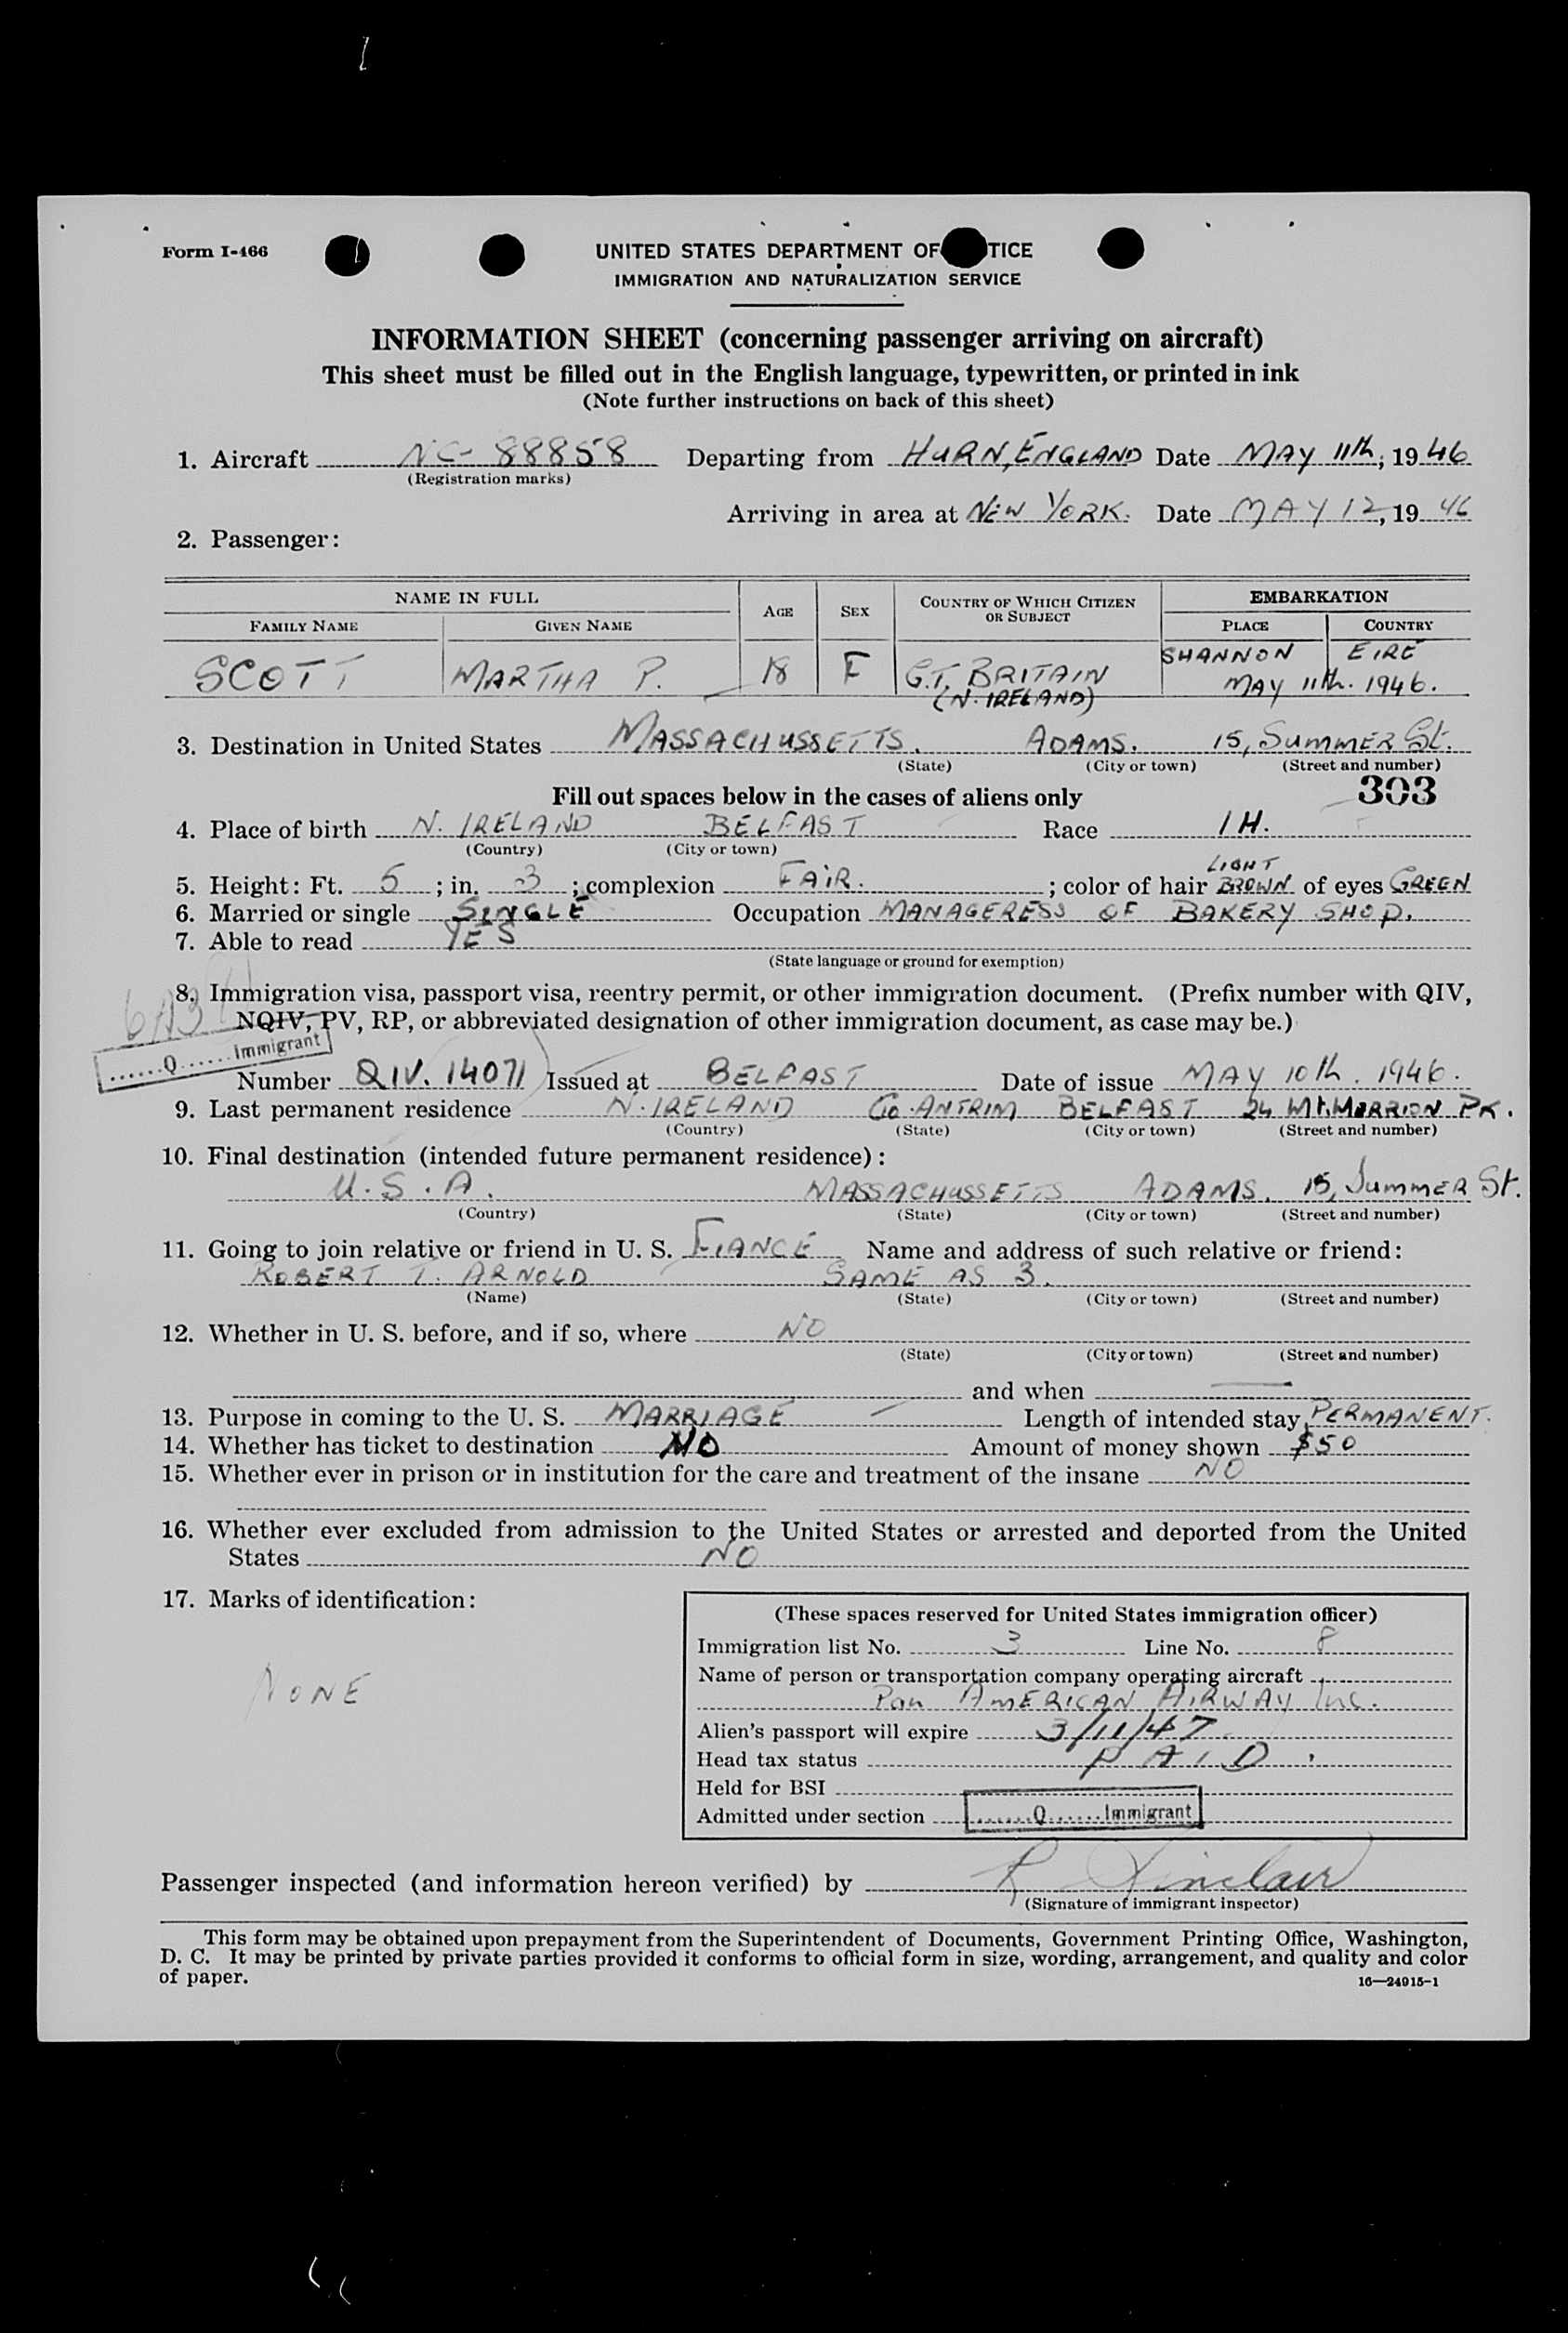 Form I-466
UNITED STATES DEPARTMENT OF TICE
IMMIGRATION AND NATURALIZATION SERVICE
INFORMATION SHEET (concerning passenger arriving on aircraft)
This sheet must be filled out in the English language, typewritten, or printed in ink
(Note further instructions on back of this sheet)
1. Aircraft NC-88858 Departing from HURN, ENGLAND Date MAY 11th, 1946
(Registration marks)
Arriving in area at NEW YORK. Date MAY 12, 1946
2. Passenger:
NAME IN FULL AGE SEX COUNTRY OF WHICH CITIZEN OR SUBJECT EMBARKATION
FAMILY NAME GIVEN NAME PLACE COUNTRY
SCOTT MARTHA P. 18 F G.T. BRITAIN SHANNON EIRE
(N. IRELAND) MAY 11th. 1946.
3. Destination in United States MASSACHUSSETTS. ADAMS. 15, SUMMER St.
(State) (City or town) (Street and number)
Fill out spaces below in the cases of aliens only 303
4. Place of birth N. IRELAND BELFAST Race IH.
(Country) (City or town)
5. Height: Ft. 5; in. 3; complexion FAIR.; color of hair LIGHT BROWN of eyes GREEN
6. Married or single SINGLE Occupation MANAGERESS OF BAKERY SHOP.
7. Able to read YES
(State language or ground for exemption)
8. Immigration visa, passport visa, reentry permit, or other immigration document. (Prefix number with QIV,
NQIV, PV, RP, or abbreviated designation of other immigration document, as case may be.)
......Q......Immigrant
Number QIV. 14071 Issued at BELFAST Date of issue MAY 10th. 1946.
9. Last permanent residence N. IRELAND Co. ANTRIM BELFAST 24 Mt. MERRION PK.
(Country) (State) (City or town) (Street and number)
10. Final destination (intended future permanent residence):
U.S.A. MASSACHUSSETTS ADAMS. 15, SUMMER St.
(Country) (State) (City or town) (Street and number)
11. Going to join relative or friend in U. S. FIANCÉ Name and address of such relative or friend:
ROBERT T. ARNOLD SAME AS 3.
(Name) (State) (City or town) (Street and number)
12. Whether in U. S. before, and if so, where NO
(State) (City or town) (Street and number)
and when —
13. Purpose in coming to the U. S. MARRIAGE Length of intended stay PERMANENT.
14. Whether has ticket to destination NO Amount of money shown $50
15. Whether ever in prison or in institution for the care and treatment of the insane NO
16. Whether ever excluded from admission to the United States or arrested and deported from the United
States NO
17. Marks of identification:
NONE
(These spaces reserved for United States immigration officer)
Immigration list No. 3 Line No. 8
Name of person or transportation company operating aircraft
Pan AMERICAN AIRWAY Inc.
Alien's passport will expire 3/11/47
Head tax status PAID.
Held for BSI
Admitted under section .......Q......Immigrant
Passenger inspected (and information hereon verified) by R Sinclair
(Signature of immigrant inspector)
This form may be obtained upon prepayment from the Superintendent of Documents, Government Printing Office, Washington,
D. C. It may be printed by private parties provided it conforms to official form in size, wording, arrangement, and quality and color
of paper.
16—24915-1